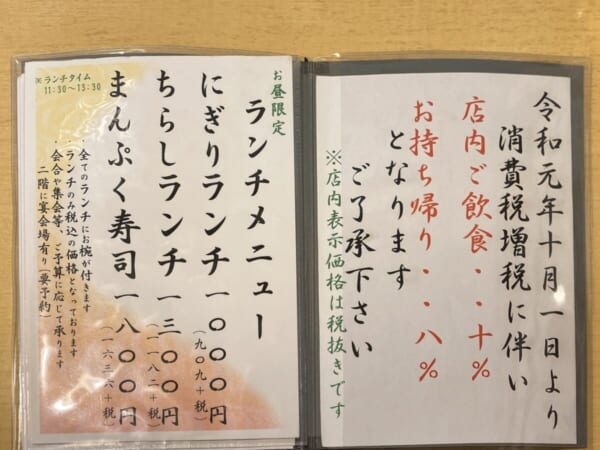 令和元年十月一日より
消費税増税に伴い
店内ご飲食・・十%
お持ち帰り・・八%
となります
ご了承下さい
※店内表示価格は税抜きです
お昼限定
ランチメニュー
にぎりランチ一〇〇〇円
(九〇九+税)
ちらしランチ一三〇〇円
(一一八二+税)
まんぷく寿司一八〇〇円
(一六三六+税)
※ランチタイム
11:30～13:30
全てのランチにお椀が付きます
・ランチのみ税込の価格となっております
・会合や集会等、ご予算に応じて承ります
二階に宴会場有り(要予約)